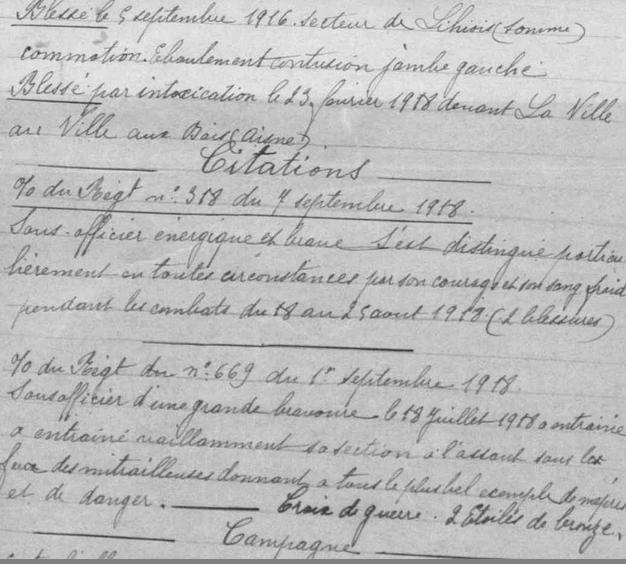 Blessé le 5 septembre 1916. secteur de Lihiois (Somme)
commotion. Eboulement contusion jambe gauche
Blessé par intoxication le 23. février 1918 devant La Ville
au Ville aux Bois (Aisne)
Citations
% du Régt n°. 358 du 7 septembre 1918.
Sous-officier énergique et brave S'est distingué particu
lièrement en toutes circonstances par son courage et son sang froid
pendant les combats du 18 au 25 aout 1918. (2 blessures)
% du Régt du n°. 669 du 1er septembre 1918.
Sousofficier d'une grande bravoure. le 18 Juillet 1918 a entrainé
a entrainé vaillamment sa section à l'assaut sous les
feux des mitrailleuses donnant a tous le plus bel exemple de mépris
et de danger. Croix de guerre. 2 Etoiles de bronze.
Campagne